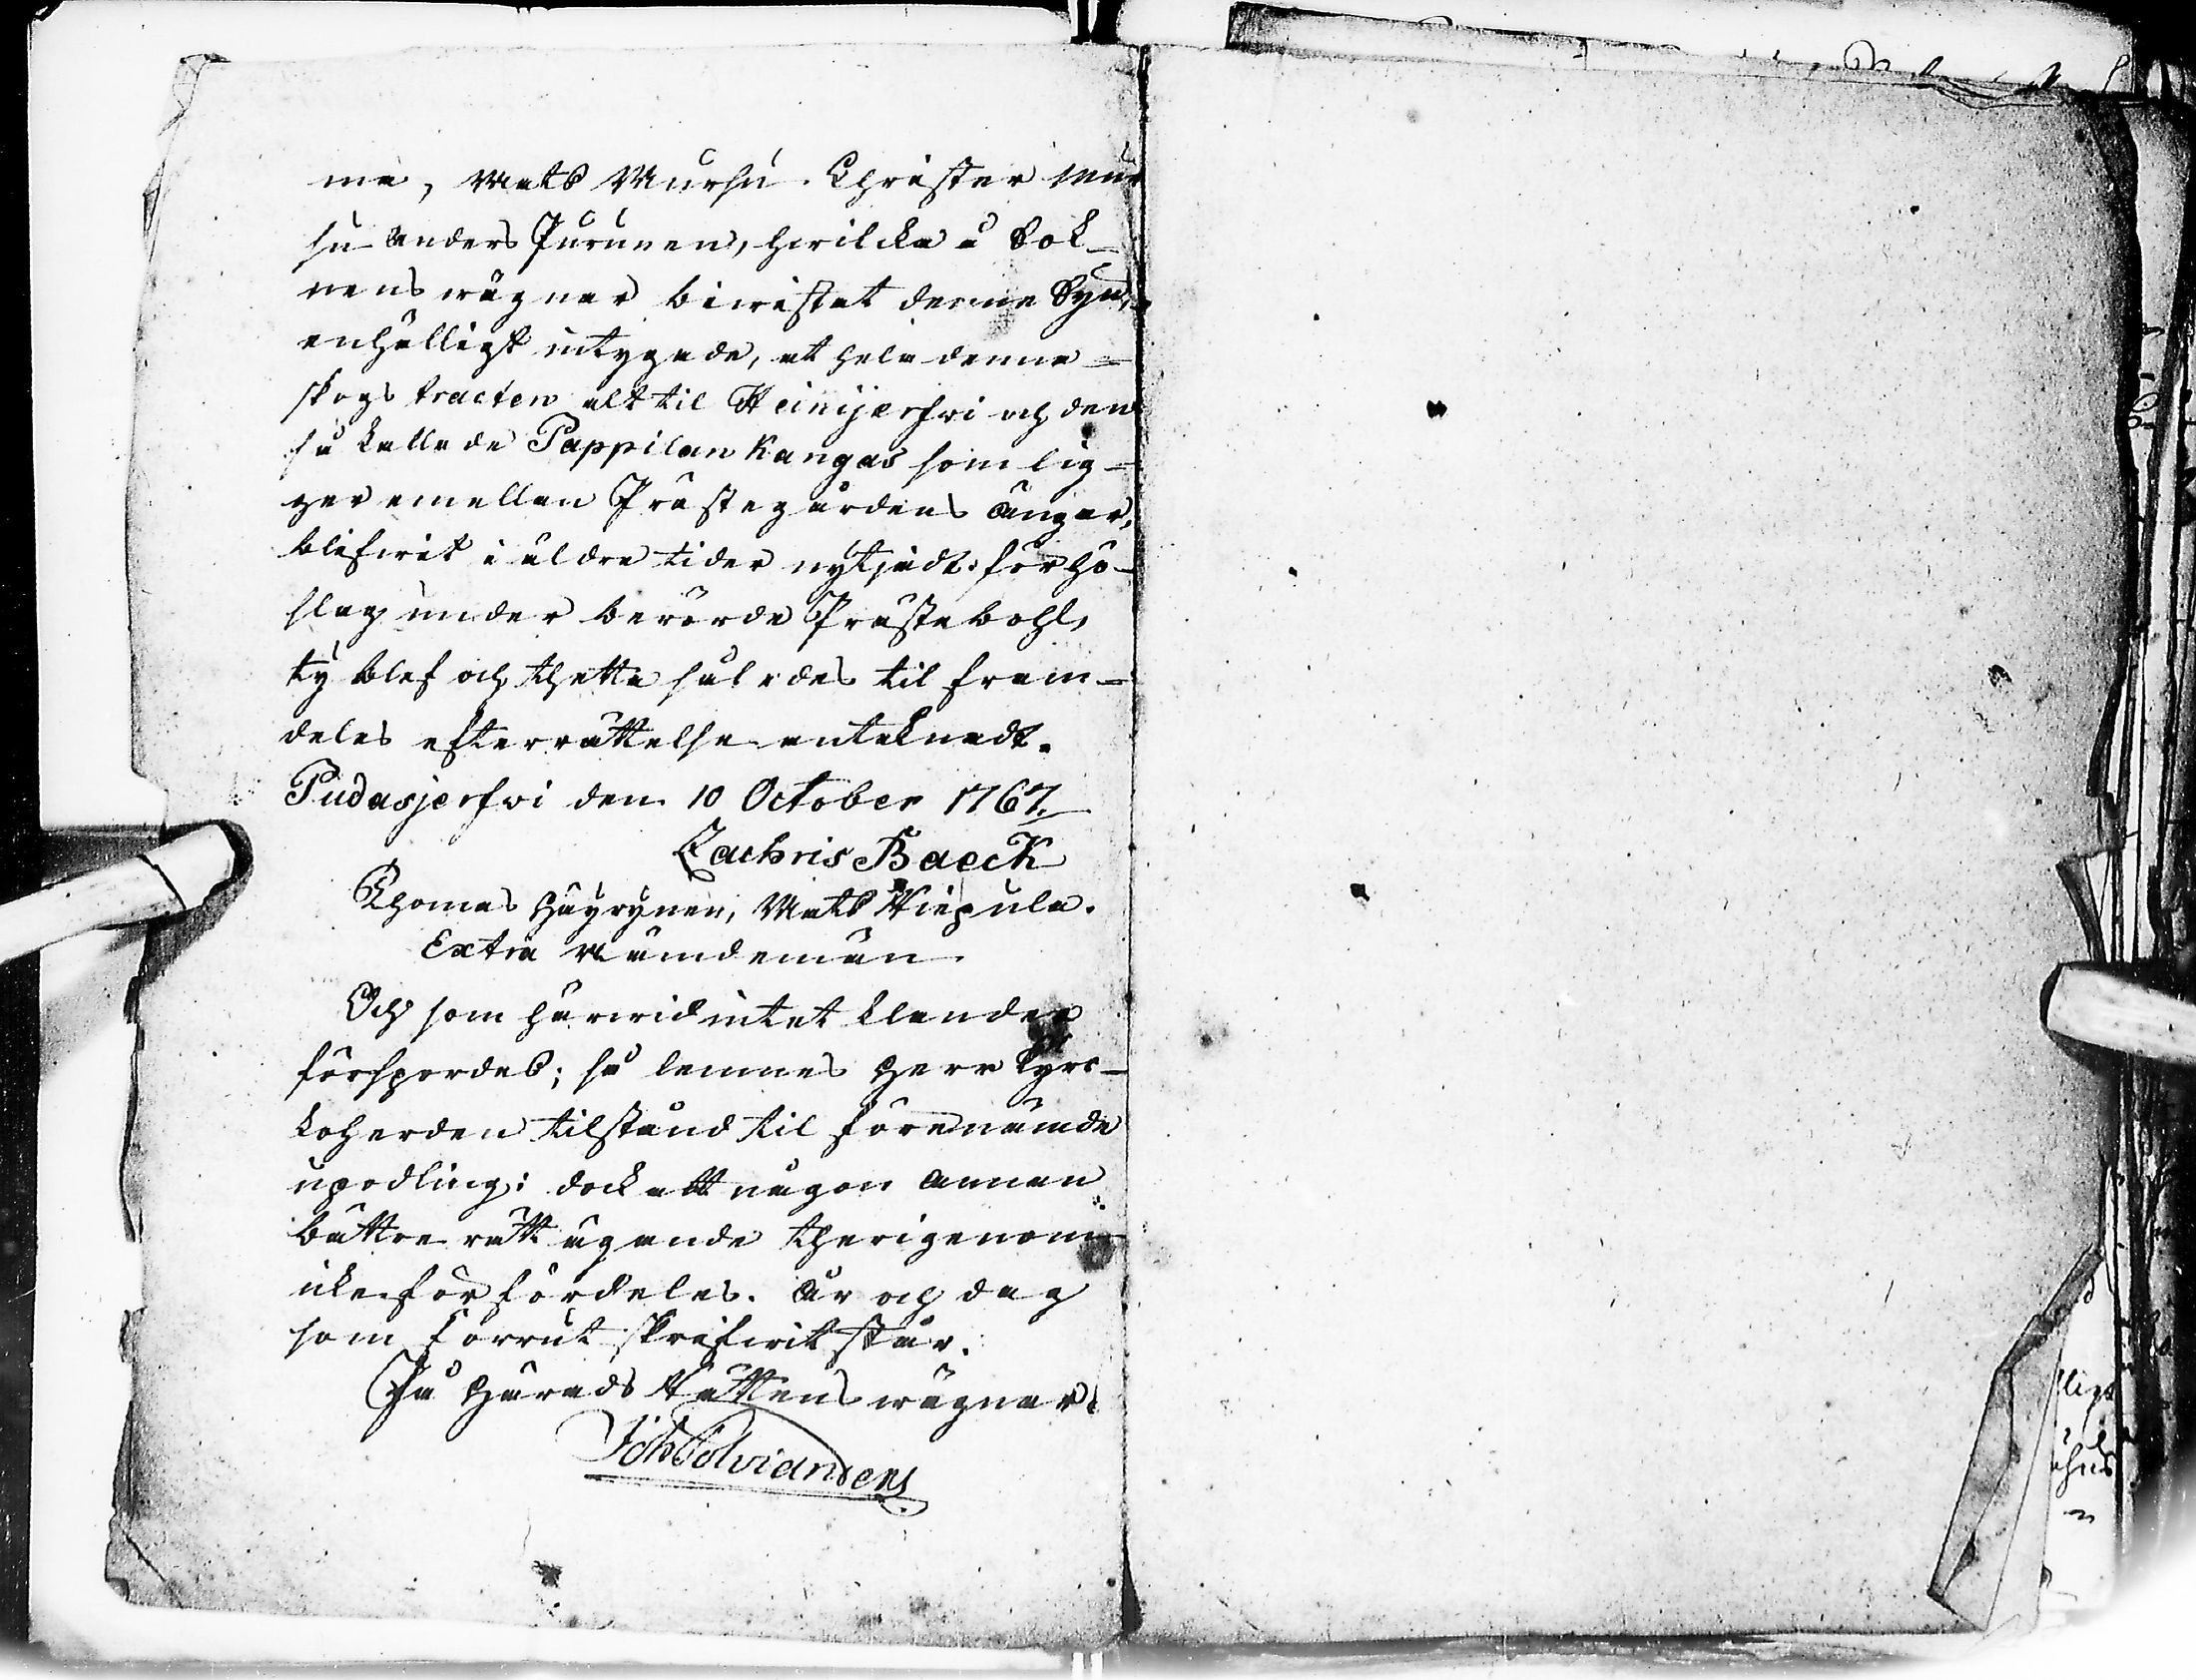 ma, Mats Mursu. Christer Mur
su Anders Purunen, hwilcka å Sok-
nens wägnar biwistat denne Syn,
enhälligt intygade, at hela denna
skogs tracten alt til Heinijerfwi och den
så kallade Pappilan Kangas som lig-
ger emellan Prästegårdens ängar,
blifwit i äldre tider nyttjadt för hö-
slag under berörde Prästebohl,
ty blef och thetta således til fram-
deles efterrättelse antecknadt.
Pudasjerfwi den 10 October 1767.
Zachris Baeck
Thomas Häyrynen, Mats Hiepula.
Extra Nämdemän
Och som härwid intet klander
förspordes; så lemnes Herr Kyrc-
koherden tilstånd til förenämde
upodling: dock att någon annan
bättre rätt ägande therigenom
icke förfördeles. År och dag
som förrut skrifwit står.
På Härads Rättens wägnar
Joh Tolviandens